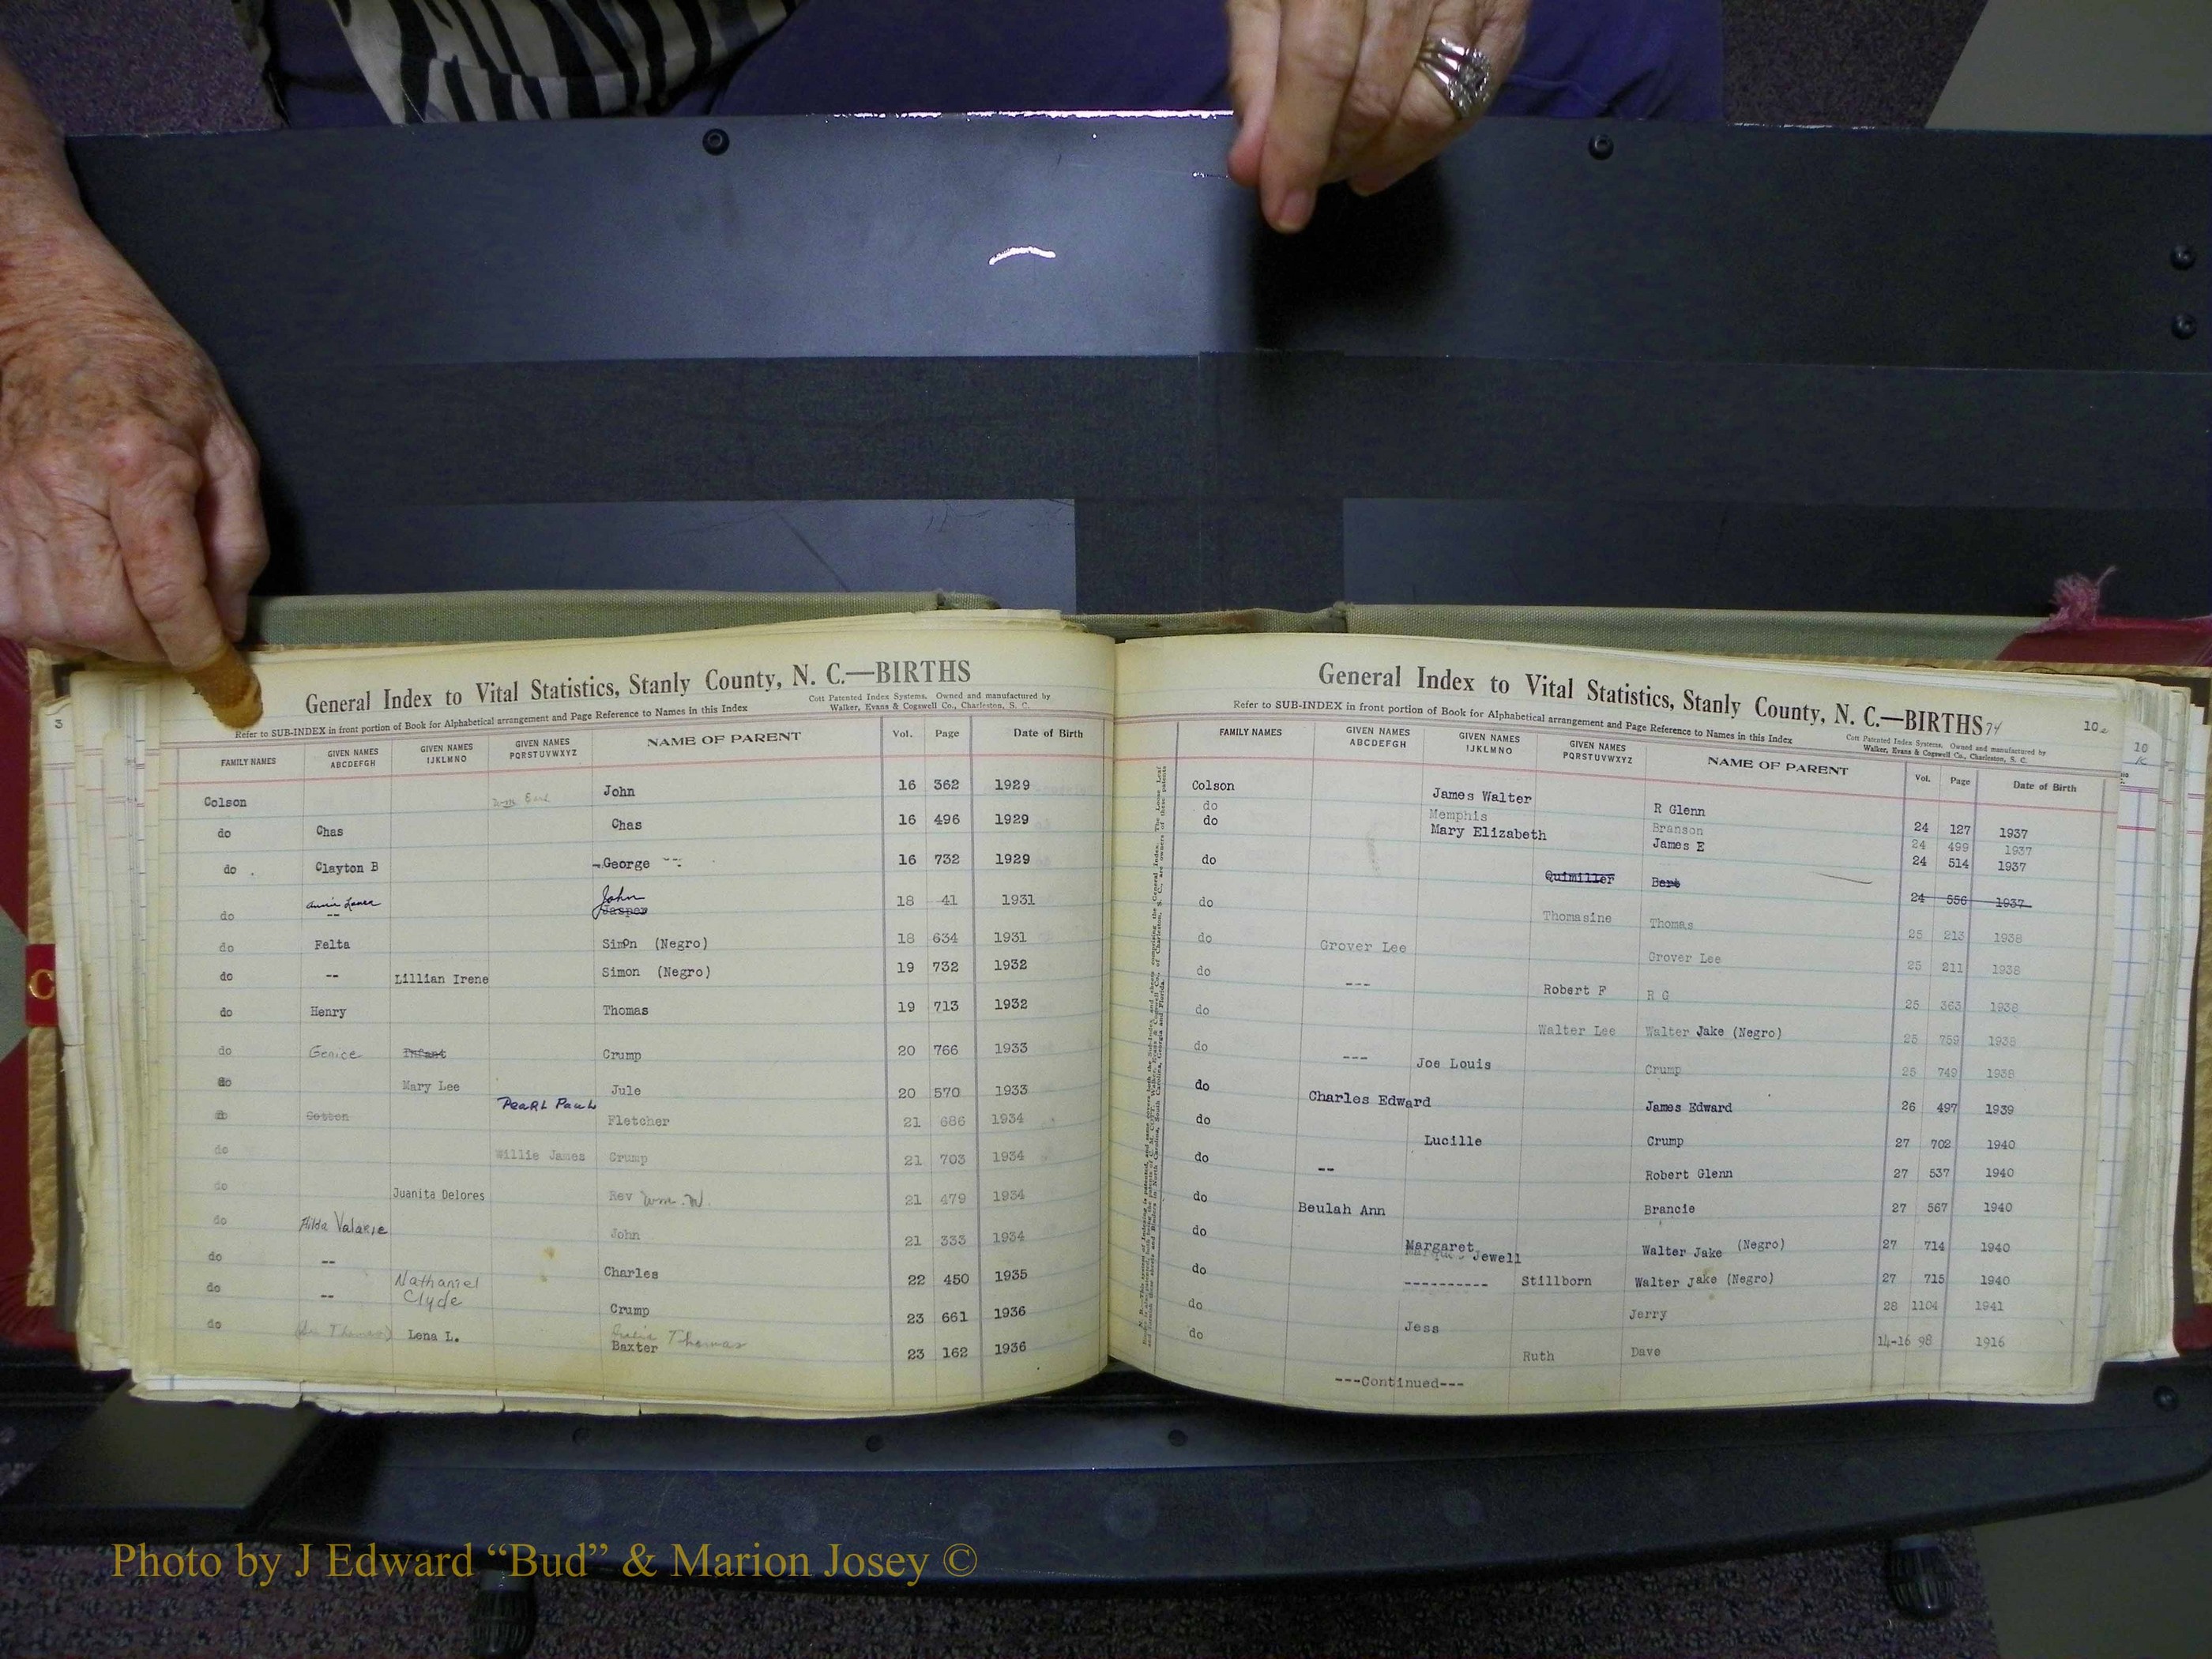 General Index to Vital Statistics, Stanly County, N. C.—BIRTHS
Refer to SUB-INDEX in front portion of Book for Alphabetical arrangement and Page Reference to Names in this Index
Cott Patented Index Systems. Owned and manufactured by
Walker, Evans & Cogswell Co., Charleston, S. C.
FAMILY NAMES GIVEN NAMES ABCDEFGH GIVEN NAMES IJKLMNO GIVEN NAMES PQRSTUVWXYZ NAME OF PARENT Vol. Page Date of Birth
Colson John 16 362 1929
do Chas Chas 16 496 1929
do Clayton B George 16 732 1929
do -- John Jasper 18 41 1931
do Felta Simon (Negro) 18 634 1931
do -- Lillian Irene Simon (Negro) 19 732 1932
do Henry Thomas 19 713 1932
do Genice Infant Crump 20 766 1933
do Mary Lee Jule 20 570 1933
do Cotton Pearl Paul Fletcher 21 686 1934
do Willie James Crump 21 703 1934
do Juanita Delores Rev Wm. W. 21 479 1934
do Hilda Valarie John 21 333 1934
do -- Charles 22 450 1935
do -- Nathaniel Clyde Crump 23 661 1936
do Lena L. Thomas Baxter 23 162 1936
General Index to Vital Statistics, Stanly County, N. C.—BIRTHS 74
10
Refer to SUB-INDEX in front portion of Book for Alphabetical arrangement and Page Reference to Names in this Index
Cott Patented Index Systems. Owned and manufactured by
Walker, Evans & Cogswell Co., Charleston, S. C.
FAMILY NAMES GIVEN NAMES ABCDEFGH GIVEN NAMES IJKLMNO GIVEN NAMES PQRSTUVWXYZ NAME OF PARENT Vol. Page Date of Birth
Colson James Walter R Glenn 24 127 1937
do Memphis Branson 24 499 1937
do Mary Elizabeth James E 24 514 1937
do Quimiller Bert 24 556 1937
do Thomasine Thomas 25 213 1938
do Grover Lee Grover Lee 25 211 1938
do --- Robert F R G 25 363 1938
do Walter Lee Walter Jake (Negro) 25 759 1938
do --- Joe Louis Crump 25 749 1938
do Charles Edward James Edward 26 497 1939
do Lucille Crump 27 702 1940
do -- Robert Glenn 27 537 1940
do Beulah Ann Brancie 27 567 1940
do Margaret Jewell Walter Jake (Negro) 27 714 1940
do ---------- Stillborn Walter Jake (Negro) 27 715 1940
do Jess Jerry 28 1104 1941
do Ruth Dave 14-16 98 1916
---Continued---
3
C
10
Photo by J Edward “Bud” & Marion Josey ©